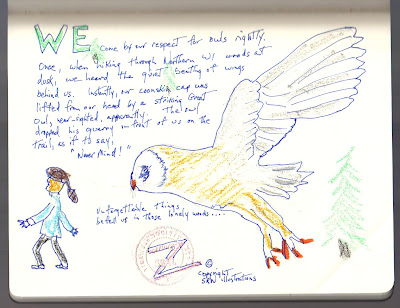 WE come by our respect for owls rightly.
Once, when hiking through Northern WI woods at
dusk, we heard the quiet beating of wings
behind us. Instantly, our coonskin cap was
lifted from our head by a striking Great
Owl, near-sighted, apparently. The owl
dropped his quarry in front of us on the
trail, as if to say,
"Never Mind!"
Unforgettable things,
us in those lonely woods....
©
Copyright
SRW illustrations